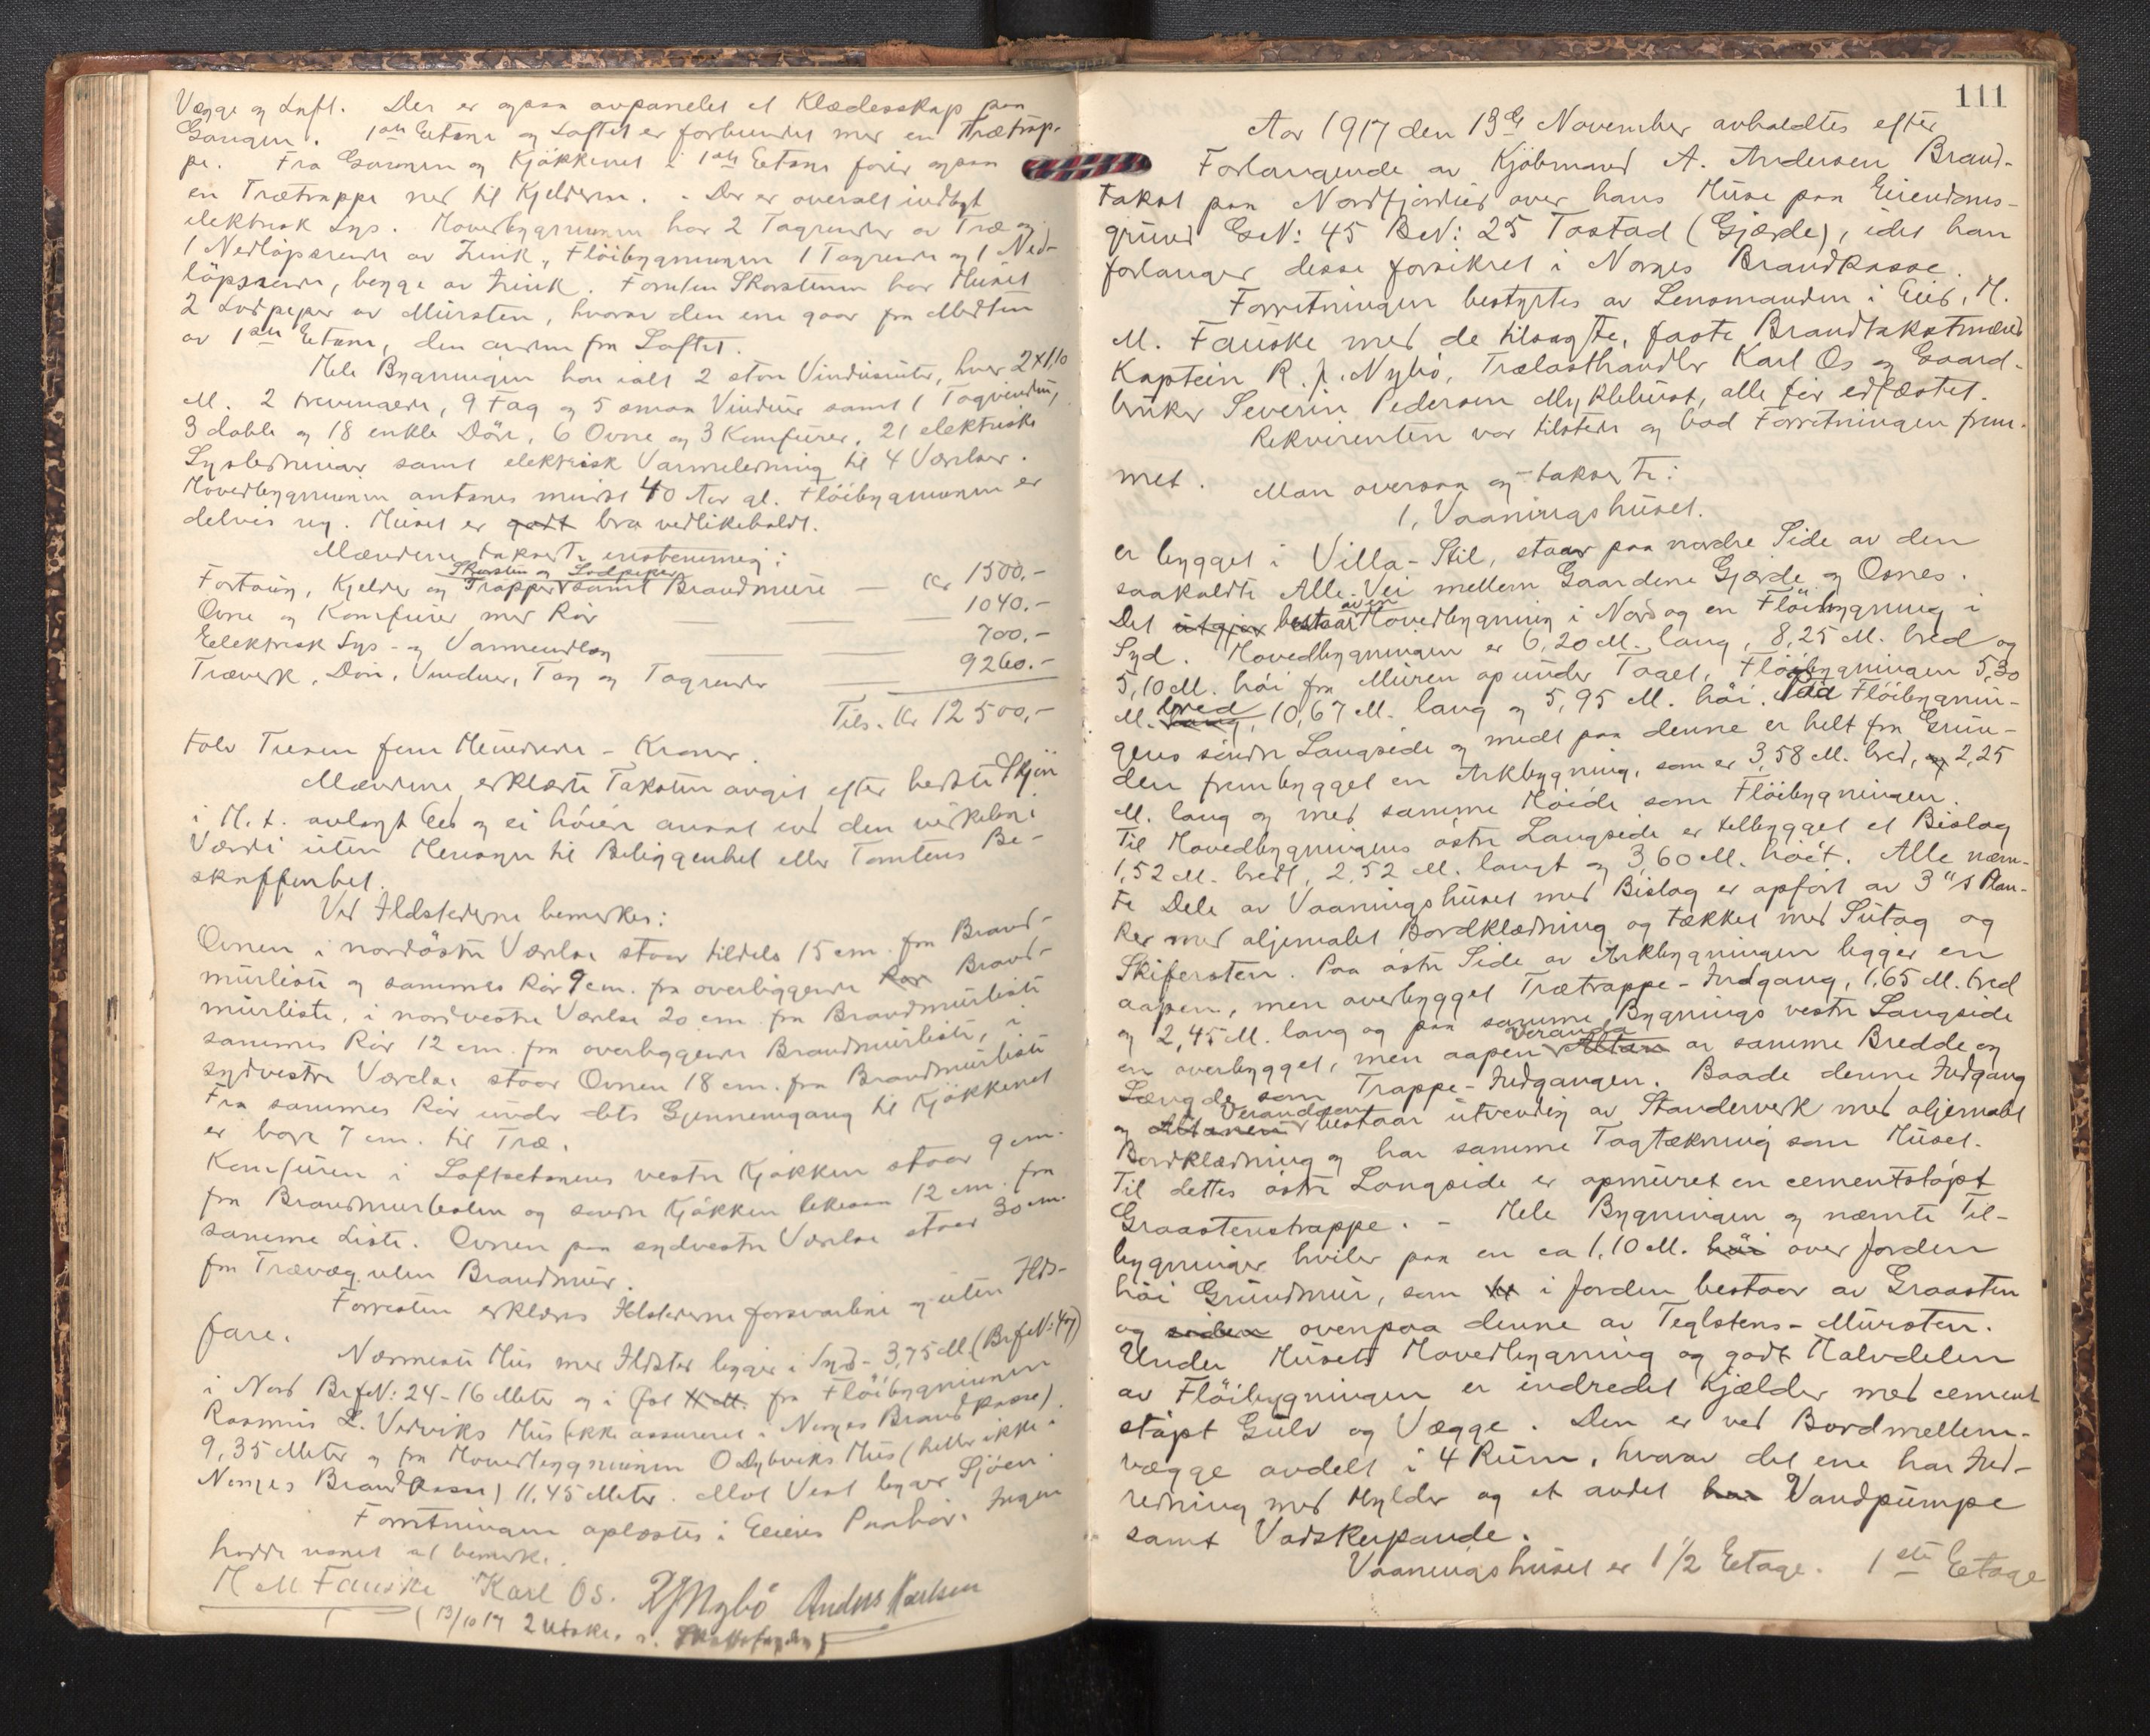 Vægge og Luft. Der er ogsaa avpanelet et Klædesskap paa
Gangen. 1ste Etage og Loftet er forbundet med en Trætrap-
pe. Fra Gangen og Kjøkkenet i 1ste Etage fører ogsaa
en Trætrappe ned til Kjelderen. - Der er overalt indlagt
elektrisk Lys. Hovedbygningen har 2 Tagrender av Træ og
1 Nedløpsrende av Zink, Fløibygningen 1 Tagrende og 1 Ned-
løpsrende, begge av Zink. Foruten Skorstenen har Huset
2 Lodpiper av Mursten, hvorav den ene gaar fra Midten
av 1ste Etage, den anden fra Loftet.
Hele Bygningen har ialt 2 store Vinduer, hver 2 x 1,10
M. 2 trevingede, 9 Fag og 5 smaa Vinduer samt 1 Tagvindu,
3 doble og 18 enkle Døre, 6 Ovne og 3 Komfurer, 21 elektriske
Lysledninger samt elektrisk Varmeledning til 4 Værelser.
Hovedbygningen antages mindst 40 Aar gl. Fløibygningen er
delvis ny. Huset er godt bra vedlikeholdt.
Mændene taksert enstemmig:
Skorsten og Lodpiper
Fortaug, Kjelder og Trapper samt Brandmure — Kr 1500.-
Ovne og Komfurer med Rør — 1040.-
Eelektrisk Lys- og Varmeanlæg — 700.-
Træverk, Døre, Vinduer, Tag og Tagrender — 9260.-
Tils. Kr 12500,-
tolv Tusen fem Hundrede - Kroner.
Mændene erklærte Taksten avgit efter bedste Skjøn
i H. t. avlagt Eed og ei høiere ansat end den virkelige
Værdi uten Hensyn til Beliggenhet eller Tomtens Be-
skaffenhet.
Ved Ildstederne bemerkes:
Ovnen i nordøstre Værelse staar tildels 15 cm. fra Brand-
murliste og sammes Rør 9 cm. fra overliggende Rør Brand-
murliste, i nordvestre Værelse 20 cm fra Brandmurliste
sammes Rør 12 cm. fra overliggende Brandmurliste, i
sydvestre Værelse staar Ovnen 18 cm. fra Brandmurliste
Fra sammes Rør under dets Gjennemgang til Kjøkkenet
er bare 7 cm. til Træ.
Komfuren i Loftsetagens vestre Kjøkken staar 9 cm.
fra Brandmurlisten og søndre Kjøkken likesaa 12 cm. fra
samme Liste. Ovnen paa sydvestre Værelse staar 30 cm.
fra Trævæg uten Brandmur.
Forresten erklæres Ildstederne forsvarlige og uten Ilds-
fare.
Nærmeste Hus med Ildsted ligger i Syd - 3,75 M (Brf. N: 47)
i Nord Brf N: 24 - 16 Meter og i Øst fra Fløibygningen
Rasmus L. Vedviks Hus (ikke assureret i Norges Brandkasse)
9,35 Meter og fra Hovedbygningen O Dybviks Hus (heller ikke i
Norges Brandkasse) 11,45 Meter. Mot Vest ligger Sjøen.
Forretningen oplæstes i Eieres Paahør. Ingen
hadde noget at bemerke.
H M. Fauske Karl Os. RJNybö Anders Karlsen
(13/10 17 2 Utskr. s.
111
Aar 1917 den 13de November avholdtes efter
Forlangende av Kjøbmand A. Andersen Brand-
takst paa Nordfjordeid over hans Huse paa Eiendoms-
grund G.N: 45 B.N: 25 Tastad (Gjærde), idet han
forlanger disse forsikret i Norges Brandkasse.
Forretningen bestyrtes av Lensmanden i Eid, H.
M. Fauske med de tilsagte, faste Brandtakstmænd
Kaptein R. J. Nybö, Trælasthandler Karl Os og Gaard-
bruker Severin Pedersen Myklebust, alle før edfæstet.
Rekvirenten var tilstede og bad Forretningen frem-
met. Man oversaa og takserte:
1, Vaaningshuset.
er bygget i Villa-Stil, staar paa nordre Side av den
saakaldte Alle-Vei mellem Gaardene Gjærde og Osnes.
av en
Det utgjør bestaar Hovedbygning i Nord og en Fløibygning i
Syd. Hovedbygningen er 6,20 M. lang, 8,25 M. bred og
5,10 M. høi fra Muren op under Taget, Fløibygningen 5,30
bred
M. lang, 10,67 M. lang og 5,95 M. høi. Paa Fløibygnin-
gens søndre Langside og midt paa denne er helt fra Grun-
den frembygget en Arkbygning, som er 3,58 M. bred, og 2,25
M. lang og med samme Høide som Fløibygningen.
Til Hovedbygningens østre Langside er tilbygget et Bislag
1,52 M. bredt, 2,52 M. langt og 3,60 M. høit. Alle nævn-
te Dele av Vaaningshuset med Bislag er opført av 3"s Plan-
ker med oljemalet Bordklædning og tækket med Sutag og
Skifersten. Paa østre Side av Arkbygningen ligger en
aapen, men overbygget Trætrappe-Indgang, 1,65 M. bred
og 2,45 M. lang og paa samme Bygnings vestre Langside
Veranda
en overbygget, men aapen Altan av samme Bredde og
Længde som Trappe-Indgangen. Baade denne Indgang
Verandaen
og Altanen bestaar utvendig av Standerverk med oljemalet
Bordklædning og har samme Tagtækning som Huset.
Til dettes østre Langside er opmuret en cementstøpt
Graastenstrappe. - Hele Bygningen og nævnte Til-
bygninger hviler paa en ca 1,10 M. høi over Jorden
høi Grundmur, som i Jorden bestaar av Graasten
og siden ovenpaa denne av Teglstens-Mursten.
Under Husets Hovedbygning og godt Halvdelen
av Fløibygningen er indredet Kjælder med cement
støpt Gulv og Vægge. Den er ved Bordmellem-
vægge avdelt i 4 Rum, hvorav det ene har Ind-
redning med Hylder og et andet har Vandpumpe
samt Vadskepande.
Vaaningshuset er 1 1/2 Etage. 1ste Etage